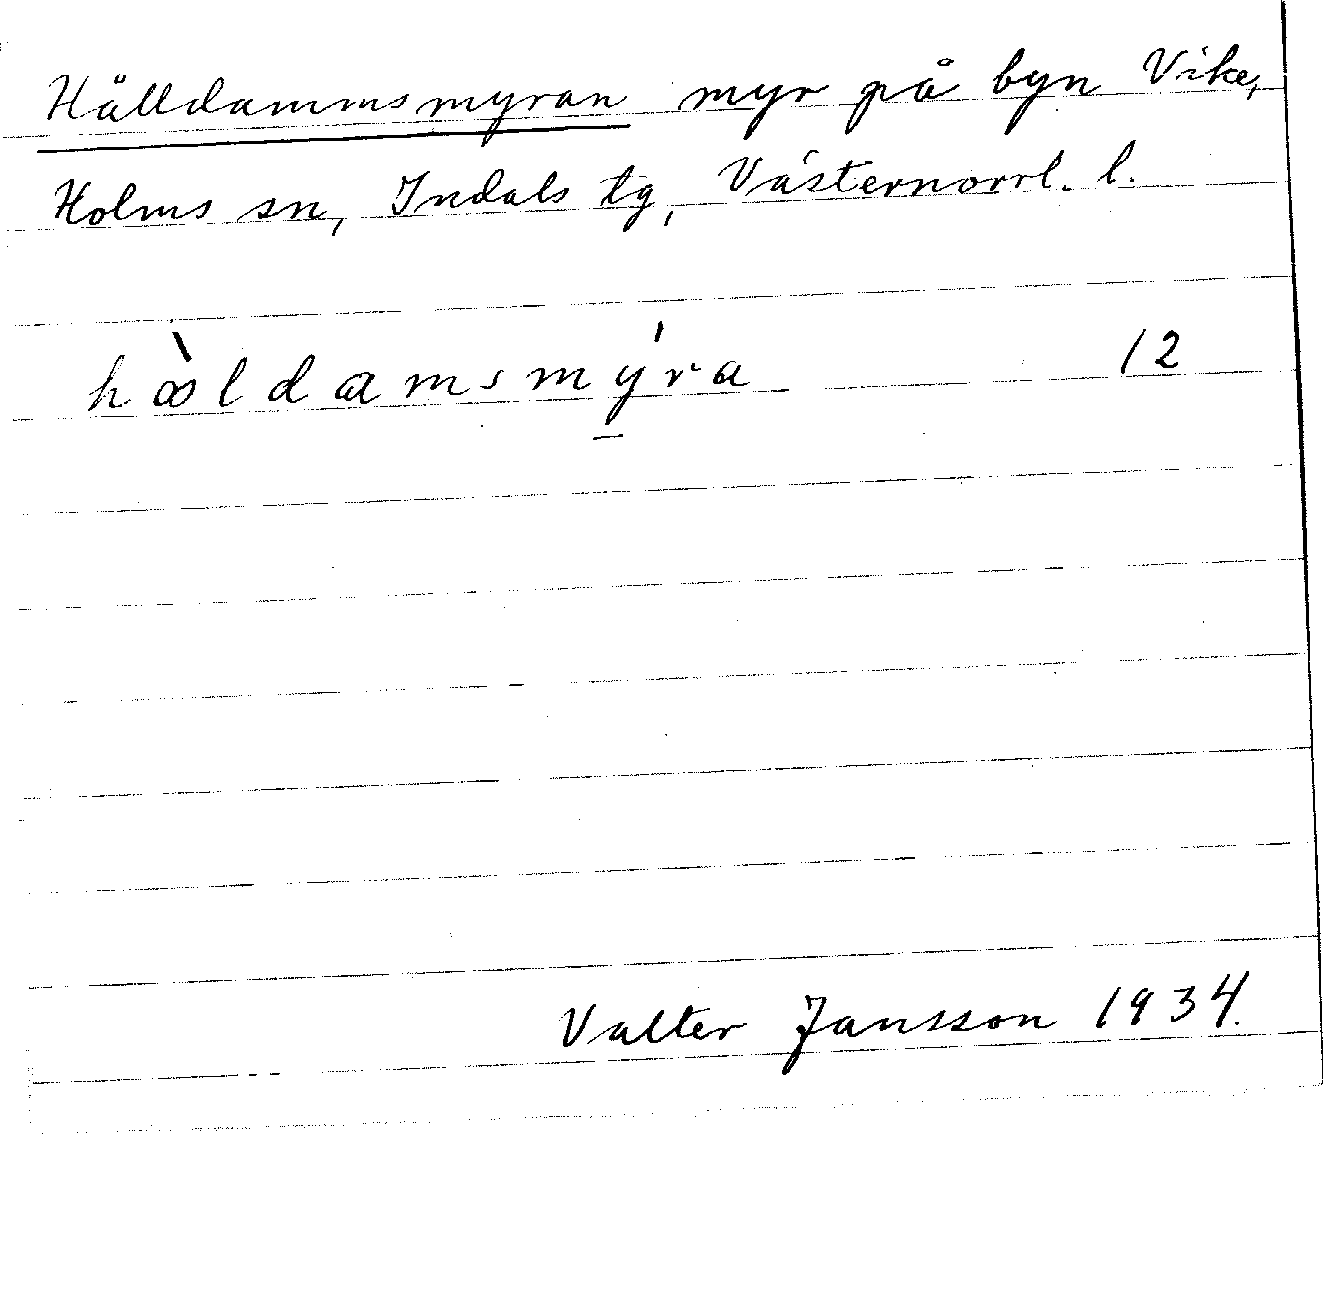 Hälldammsmyran myr på byn Vike,
Holms sn, Indals tg, Västernorrl. l.
hæ̀ldamsmýra 12
Valter Jansson 1934.